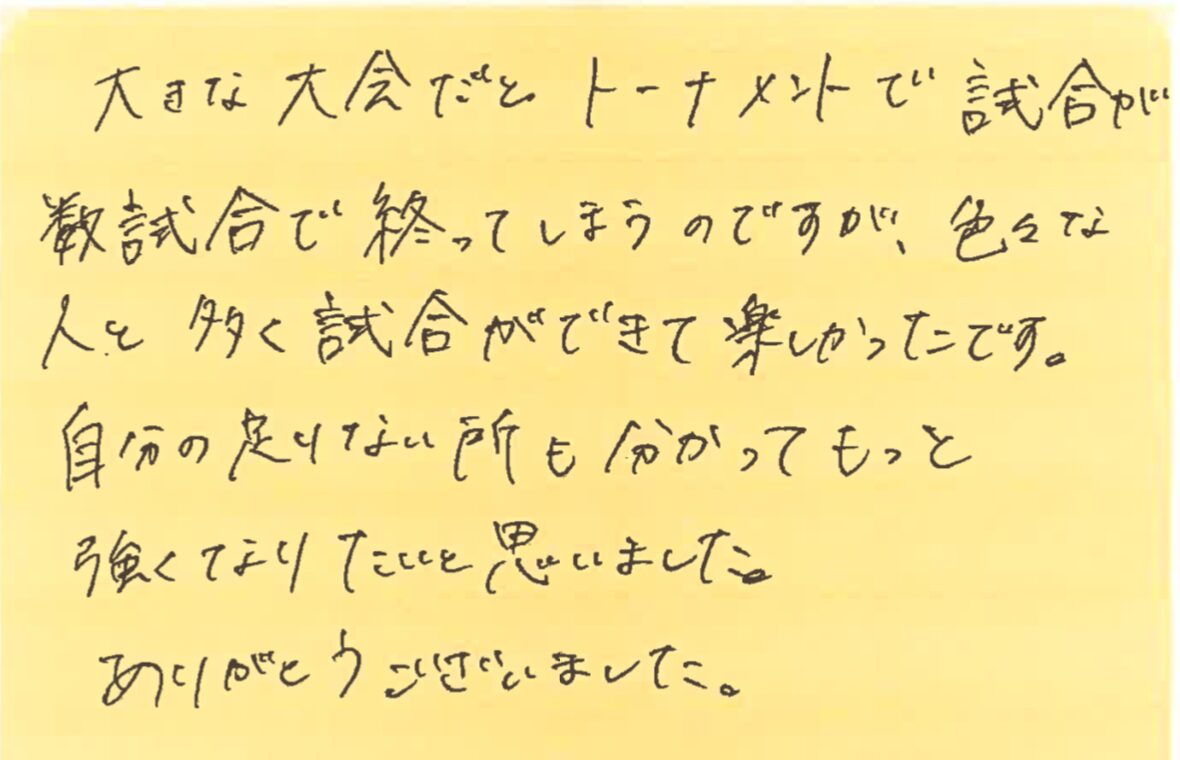 大きな大会だと トーナメントで試合が
数試合で終ってしまうのですが、色々な
人と 多く試合ができて楽しかったです。
自分の足りない所も分かってもっと
強くなりたいと思いました。
ありがとうございました。